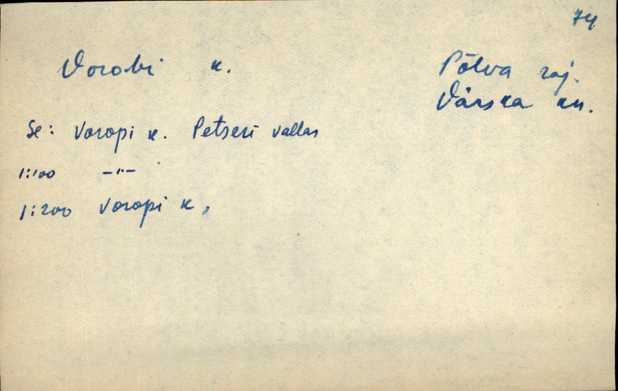 74
Vorobi k. Põlva raj.
Värska kn.
Se: Voropi k. Petseri vallas
1:100 -"-
1:200 Voropi k,